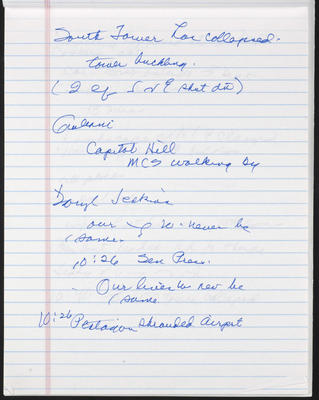 South Tower has collapsed.
tower buckling.
(2 of 5
Giuliani
Capitol Hill
MCS walking by
Daryl Jenkins
our never be
same.
10:26 Sen Press.
Our lives nev be
same
10:26 Pentagon shrouded Airport